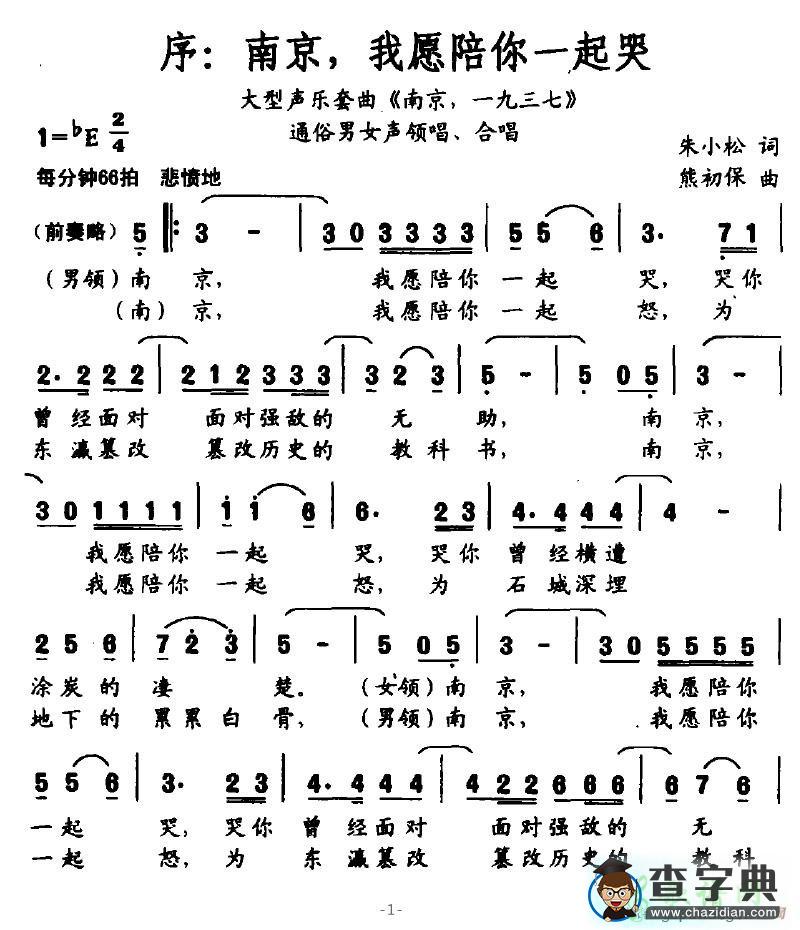 序：南京，我愿陪你一起哭
大型声乐套曲《南京，一九三七》
1=♭E 2/4
通俗男女声领唱、合唱
朱小松 词
每分钟66拍 悲愤地
熊初保 曲
(前奏略) 5 |: 3 - | 3 0 3 3 3 3 | 5 5 6 | 3. 7 1 |
(男领)南 京， 我愿陪你 一 起 哭，哭你
(南)京， 我愿陪你 一 起 怒，为
2. 2 2 2 | 2 1 2 3 3 3 | 3 2 3 | 5 - | 5 0 5 | 3 - |
曾 经面对 面对强敌的 无 助， 南 京，
东 瀛篡改 篡改历史的 教 科 书， 南 京，
3 0 1 1 1 1 | 1 1 6 | 6. 2 3 | 4. 4 4 4 | 4 - |
我愿陪你 一 起 哭，哭你 曾 经横遭
我愿陪你 一 起 怒，为 石 城深埋
2 5 6 | 7 2 3 | 5 - | 5 0 5 | 3 - | 3 0 5 5 5 5 |
涂炭的 凄 楚。 (女领)南 京， 我愿陪你
地下的 累累白 骨， (男领)南 京， 我愿陪你
5 5 6 | 3. 2 3 | 4. 4 4 4 | 4 2 2 6 6 6 | 6 7 6 |
一 起 哭，哭你 曾 经面对 面对强敌的 无
一 起 怒，为 东 瀛篡改 篡改历史的 教 科
查字典
www.chazidian.com
-1-